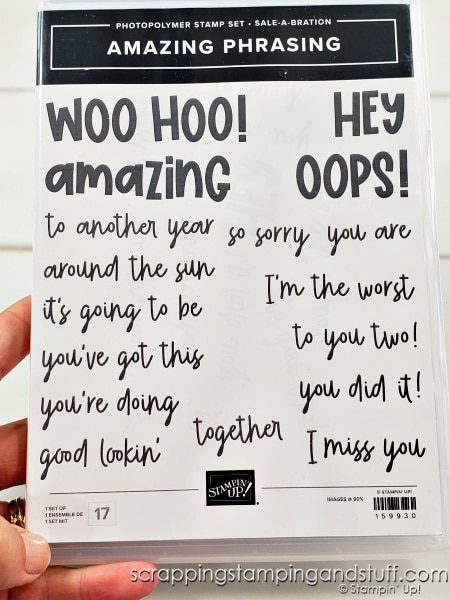 PHOTOPOLYMER STAMP SET • SALE-A-BRATION
AMAZING PHRASING
WOO HOO! HEY
amazing OOPS!
to another year so sorry you are
around the sun
I'm the worst
it's going to be
to you two!
you've got this
you're doing
you did it!
together
good lookin'
I miss you
STAMPIN' UP!
© STAMPIN' UP!
IMAGES @ 90%
1 SET OF
1 ENSEMBLE DE
1 SET MIT
17
159930
scrappingstampingandstuff.com
© Stampin' Up!